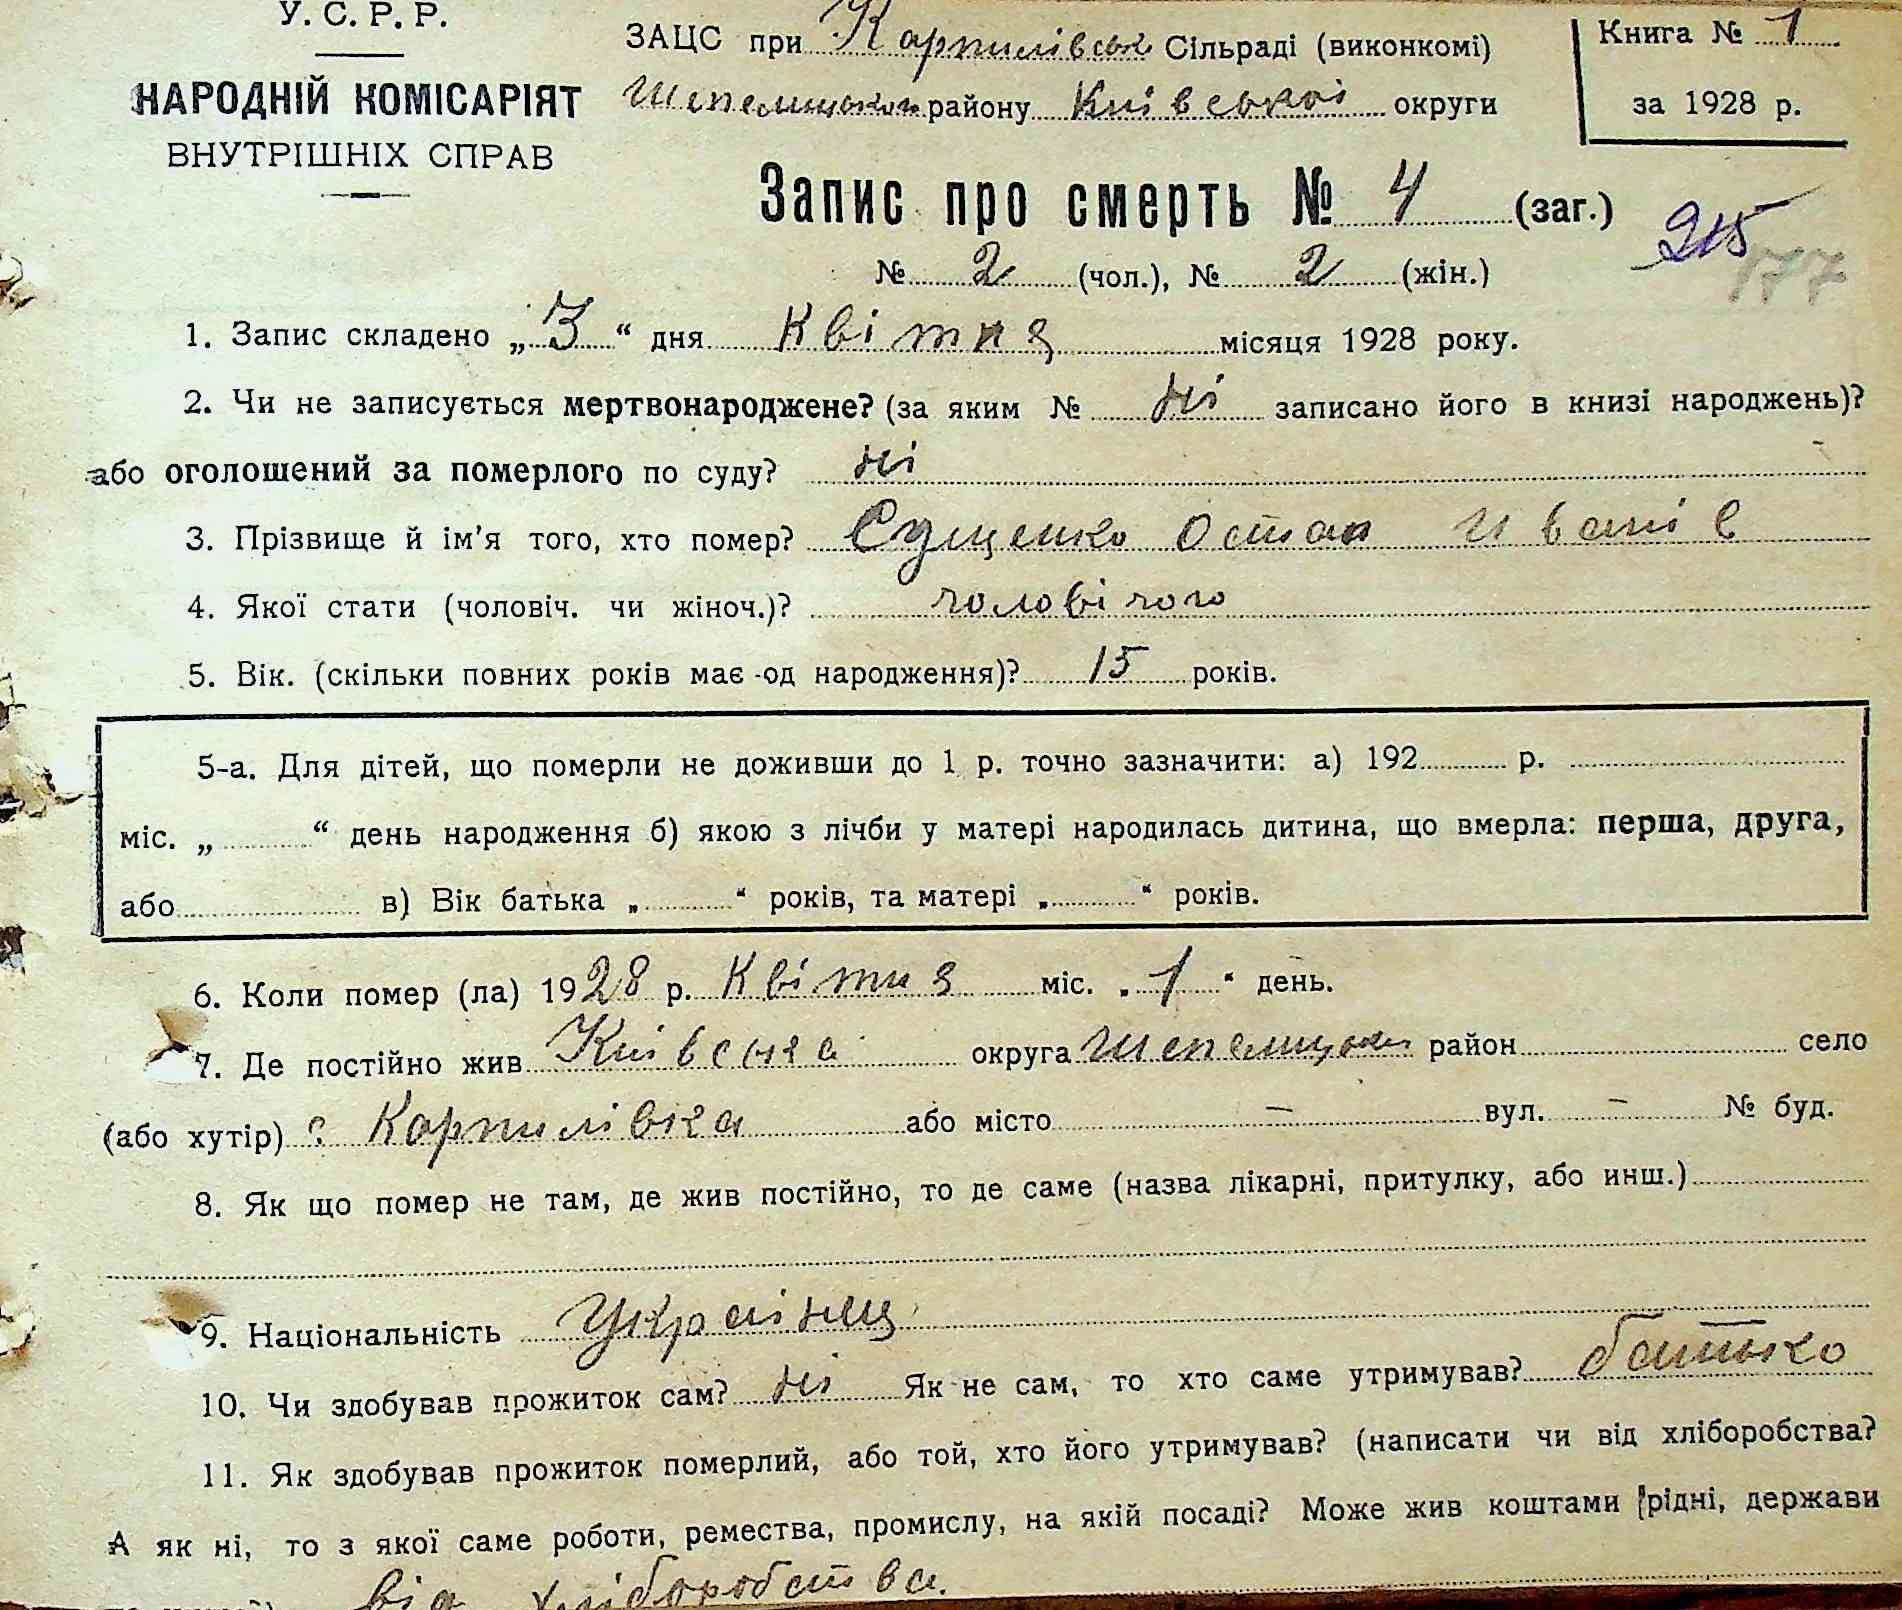 У. С. Р. Р.
НАРОДНІЙ КОМІСАРІЯТ
ВНУТРІШНІХ СПРАВ
ЗАЦС при Карпилівськ Сільраді (виконкомі)
Шепелицького району Київської округи
Книга № 1
за 1928 р.
Запис про смерть № 4 (заг.)
215
177
№ 2 (чол.), № 2 (жін.)
1. Запис складено „ 3 “ дня Квітня місяця 1928 року.
2. Чи не записується мертвонароджене? (за яким № ні записано його в книзі народжень)?
або оголошений за померлого по суду? ні
3. Прізвище й ім'я того, хто помер? Сущенко Остап Иванів
4. Якої стати (чоловіч. чи жіноч.)? чоловічого
5. Вік. (скільки повних років має од народження)? 15 років.
5-а. Для дітей, що померли не доживши до 1 р. точно зазначити: а) 192 р.
міс. „ “ день народження б) якою з лічби у матері народилась дитина, що вмерла: перша, друга,
або в) Вік батька „ “ років, та матері „ “ років.
6. Коли помер (ла) 1928 р. Квітня міс. „ 1 “ день.
7. Де постійно жив Київська округа Шепелицький район село
(або хутір) с. Карпилівка або місто — вул. — № буд.
8. Як що помер не там, де жив постійно, то де саме (назва лікарні, притулку, або инш.)
9. Національність Українец
10. Чи здобував прожиток сам? ні Як не сам, то хто саме утримував? батько
11. Як здобував прожиток померлий, або той, хто його утримував? (написати чи від хліборобства?
А як ні, то з якої саме роботи, ремества, промислу, на якій посаді? Може жив коштами рідні, держави
від хліборобства.